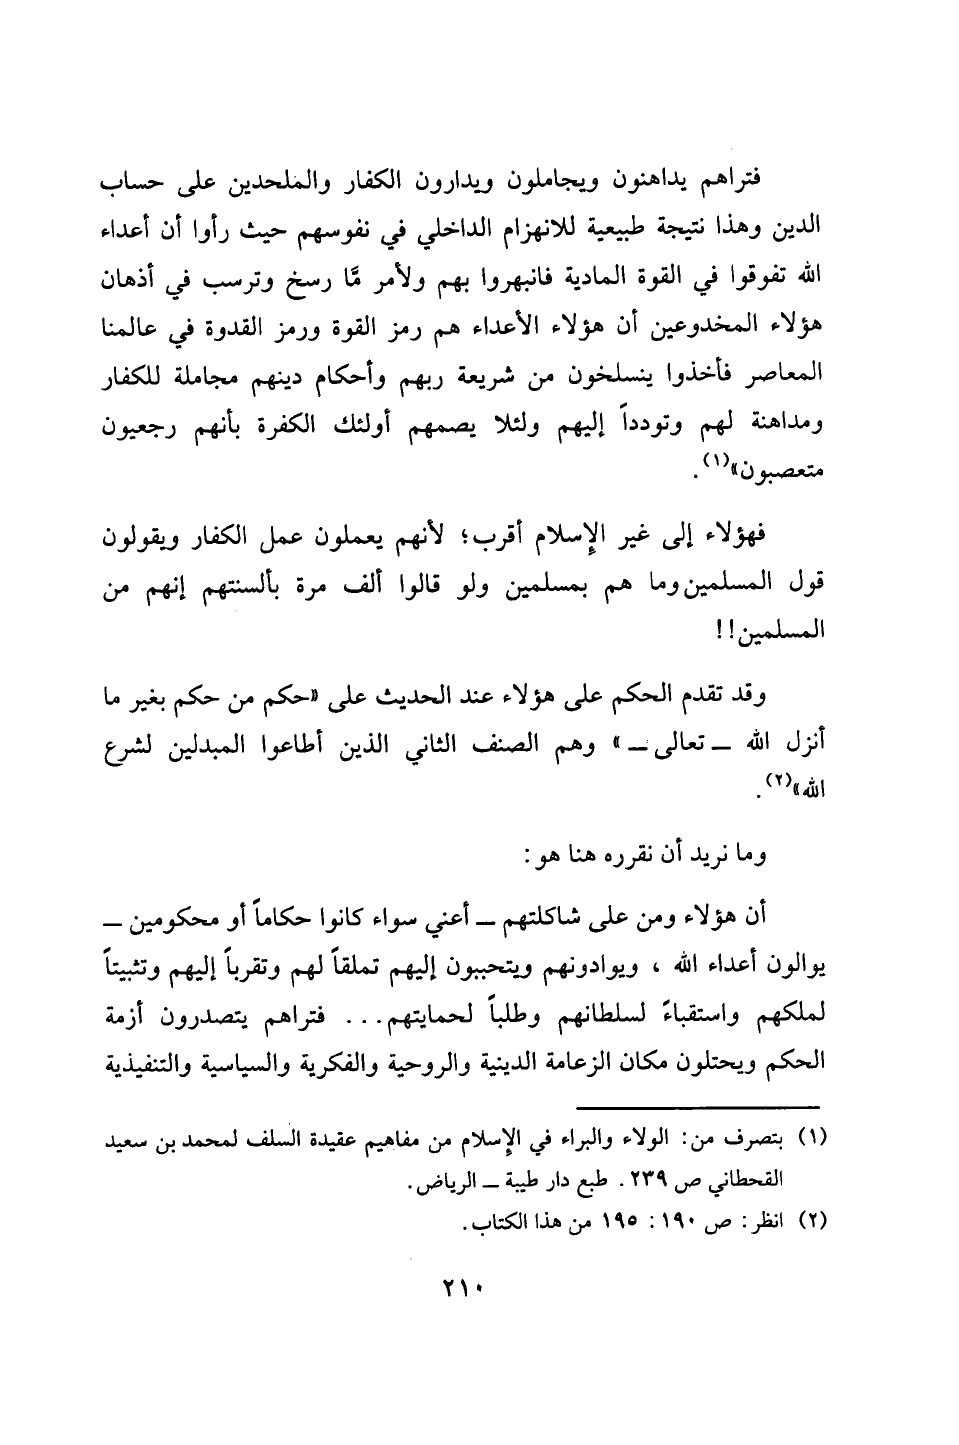 فتراهم يداهنون ويجاملون ويدارون الكفار والملحدين على حساب
الدين وهذا نتيجة طبيعية للانهزام الداخلي في نفوسهم حيث رأوا أن أعداء
الله تفوقوا في القوة المادية فانبهروا بهم ولأمر مَّا رسخ وترسب في أذهان
هؤلاء المخدوعين أن هؤلاء الأعداء هم رمز القوة ورمز القدوة في عالمنا
المعاصر فأخذوا ينسلخون من شريعة ربهم وأحكام دينهم مجاملة للكفار
ومداهنة لهم وتودداً إليهم ولئلا يصمهم أولئك الكفرة بأنهم رجعيون
متعصبون»(١).
فهؤلاء إلى غير الإسلام أقرب؛ لأنهم يعملون عمل الكفار ويقولون
قول المسلمين وما هم بمسلمين ولو قالوا ألف مرة بألسنتهم إنهم من
المسلمين!!
وقد تقدم الحكم على هؤلاء عند الحديث على «حكم من حكم بغير ما
أنزل الله ــ تعالى ــ» وهم الصنف الثاني الذين أطاعوا المبدلين لشرع
الله»(٢).
وما نريد أن نقرره هنا هو:
أن هؤلاء ومن على شاكلتهم ــ أعني سواء كانوا حكاماً أو محكومين ــ
يوالون أعداء الله ، ويوادونهم ويتحببون إليهم تملقاً لهم وتقرباً إليهم وتثبيتاً
لملكهم واستقباءً لسلطانهم وطلباً لحمايتهم... فتراهم يتصدرون أزمة
الحكم ويحتلون مكان الزعامة الدينية والروحية والفكرية والسياسية والتنفيذية
(١) بتصرف من: الولاء والبراء في الإسلام من مفاهيم عقيدة السلف لمحمد بن سعيد
القحطاني ص ٢٣٩. طبع دار طيبة ــ الرياض.
(٢) انظر: ص ١٩٠: ١٩٥ من هذا الكتاب.
٢١٠